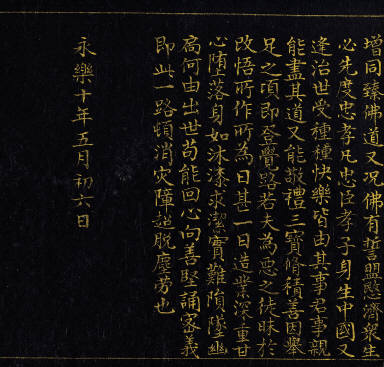 增同臻佛道又况佛有誓愍濟衆生
必先度忠孝凡忠臣孝子身生中國又
逢治世受種種快樂皆由其事君事親
能盡其道又能敬禮三寶脩積善因舉
足之頃即登覺路若夫為惡之徒昧於
改悟所作所為日甚一日造業深重甘
心墮落身如沐漆求潔實難隕墜幽
高何由出世苟能回心向善堅誦密義
即此一路頓消灾障超脫塵勞也
永樂十年五月初六日